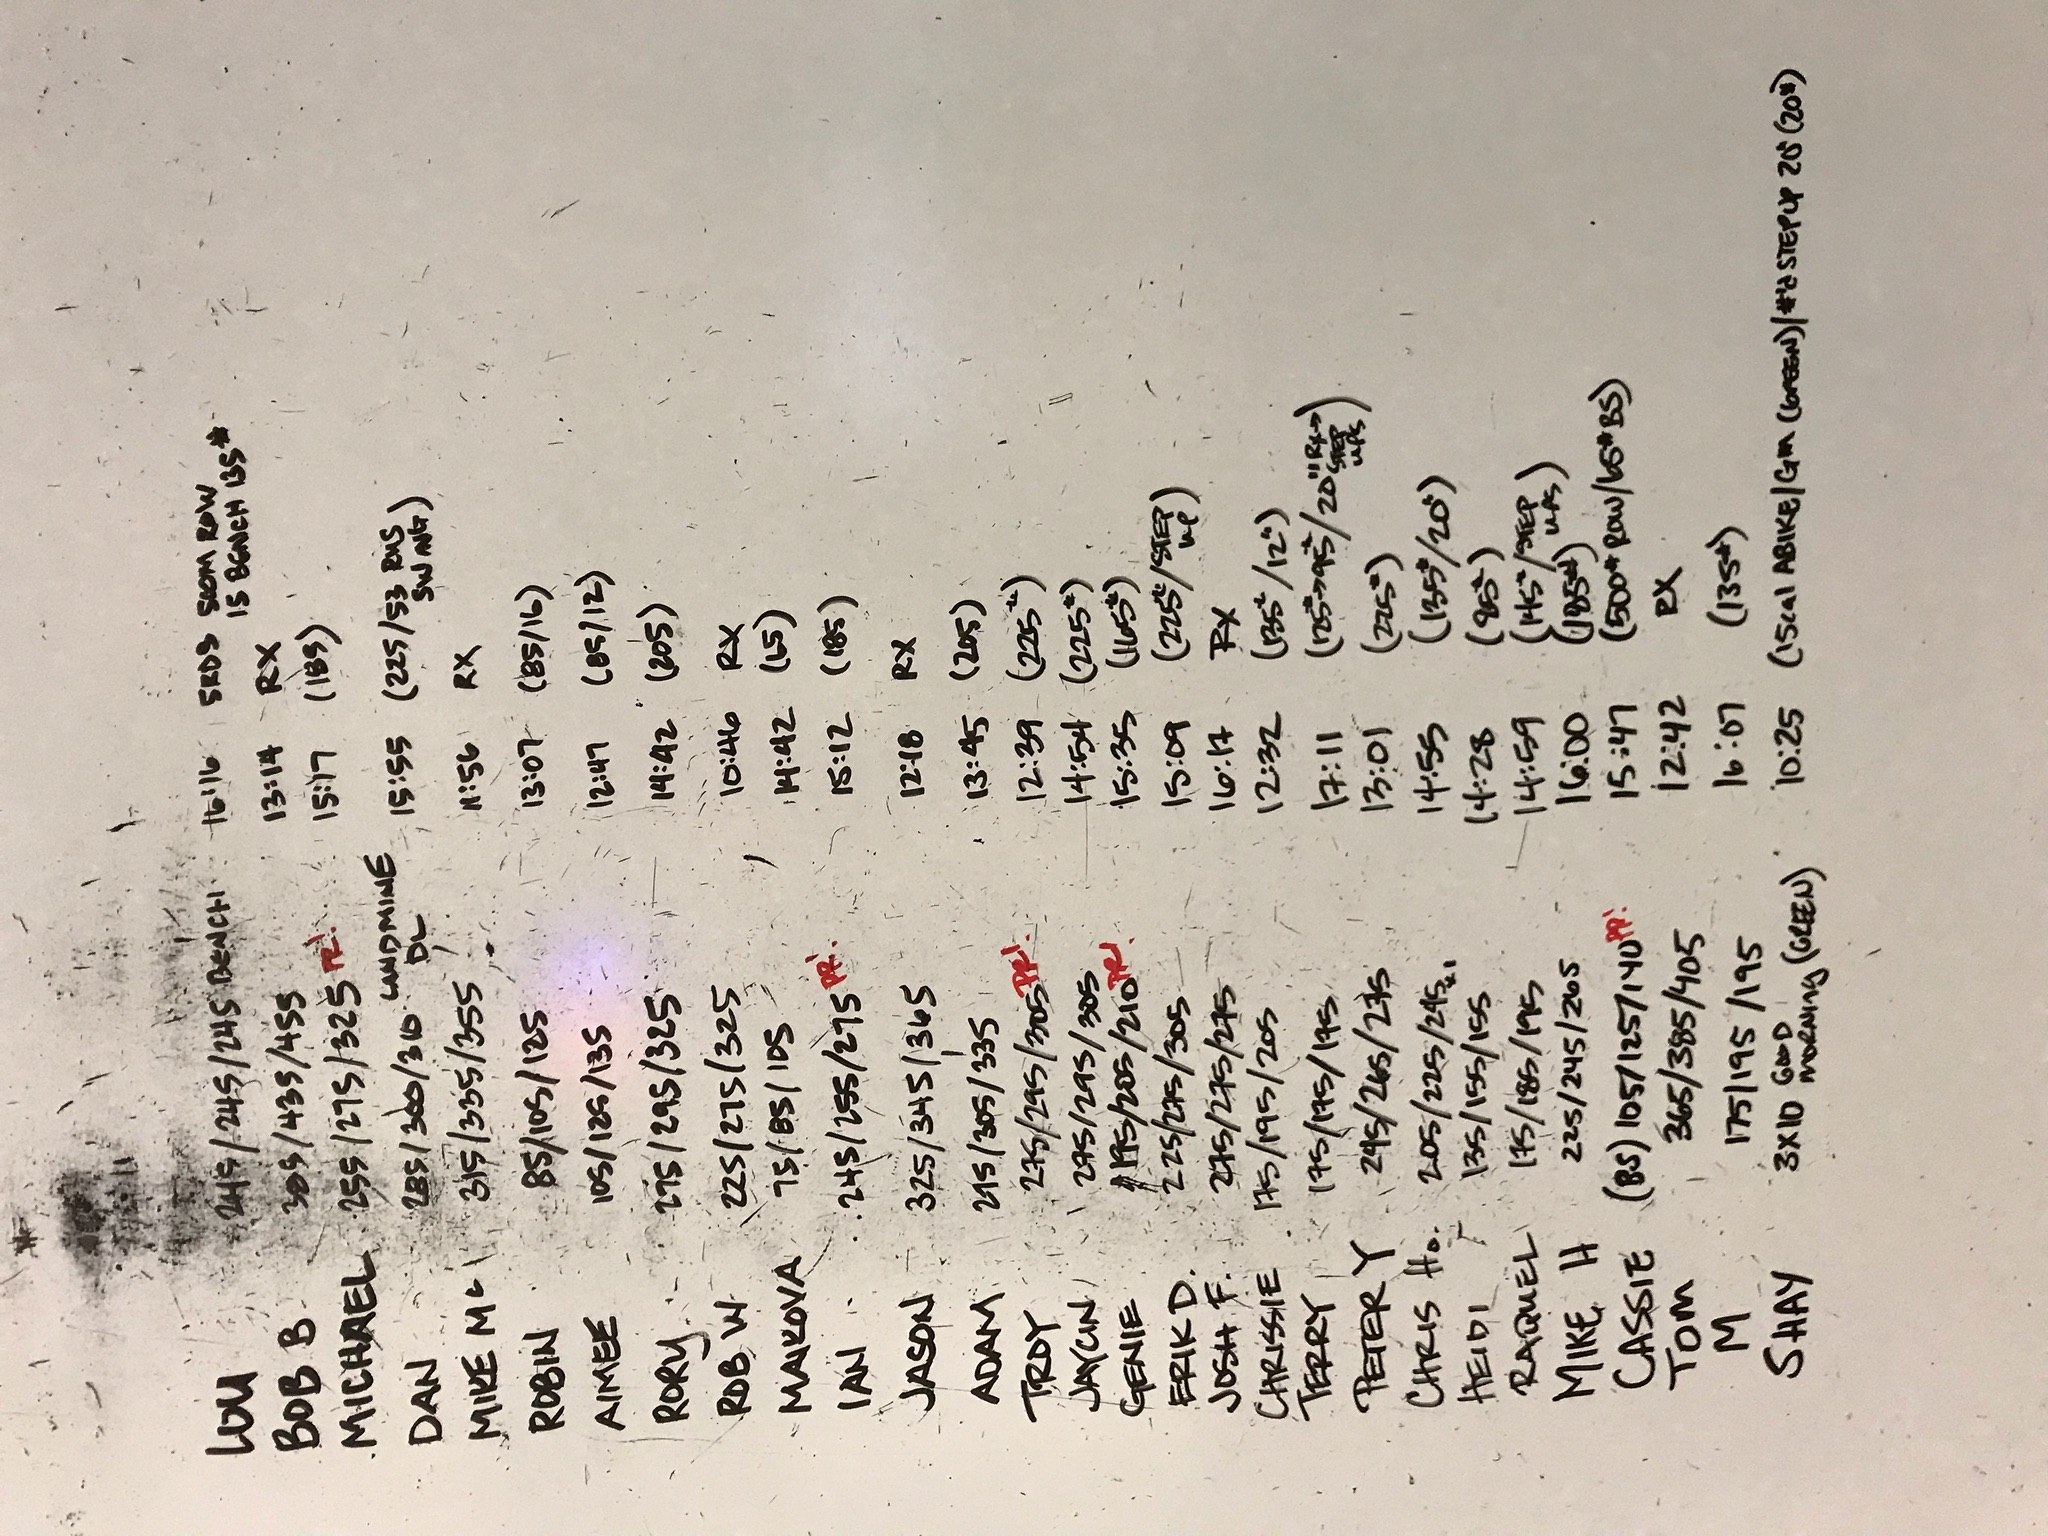 LOU 245/245/245 BENCH 16:16 5RDS 500M ROW
15 BENCH 135#
BOB B 395/435/455 13:14 RX
MICHAEL 255/275/325 PR! 15:17 (185)
DAN 285/300/310 LANDMINE DL 15:55 (225/53 RUS SWING)
MIKE Mc 315/335/355 11:56 RX
ROBIN 85/105/125 13:07 (85/16)
AIMEE 105/125/135 12:47 (85/12)
RORY 275/295/325 14:42 (205)
ROB W 225/275/325 10:46 RX
MAKOVA 75/85/105 14:42 (65)
IAN 245/255/295 PR! 15:12 (185)
JASON 325/345/365 12:18 RX
ADAM 295/305/335 13:45 (205)
TRDY 275/295/305 PR! 12:39 (225#)
JAYCIN 275/295/305 14:54 (225#)
GENIE 195/205/210 PR! 15:35 (165#)
ERIK D. 225/275/305 15:09 (225#/STEP UP)
JOSH F. 275/275/275 16:17 RX
CHRISSIE 175/195/205 12:32 (135#/12")
TERRY 175/175/175 17:11 (125#→95#/20" RX→ STEP UPS)
PETER Y 245/265/275 13:01 (225#)
CHRIS Ho. 205/225/245 14:55 (135#/20")
HEIDI 135/155/155 14:28 (95#)
RAQUEL 175/185/195 14:59 (145#/STEP UPS)
MIKE H 225/245/265 16:00 (185#)
CASSIE (BS) 105/125/140 PR! 15:47 (500# ROW/65# BS)
TOM 365/385/405 12:42 RX
M 175/195/195 16:07 (135#)
SHAY 3X10 GOOD MORNING (GREEN) 10:25 (15cal ABIKE/GM (GREEN)/ STEP UP 20" (20#)